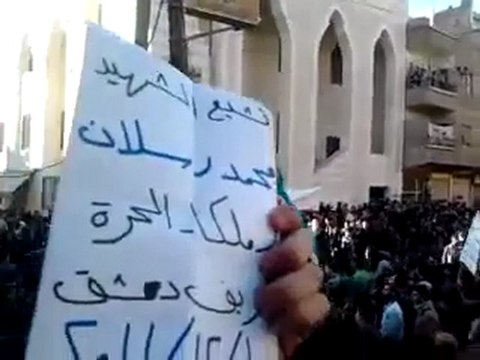 تشيع الشهيد
محمد رسلان
زملكا-الحرة
ريف دمشق
٢٠١١/١٢/١